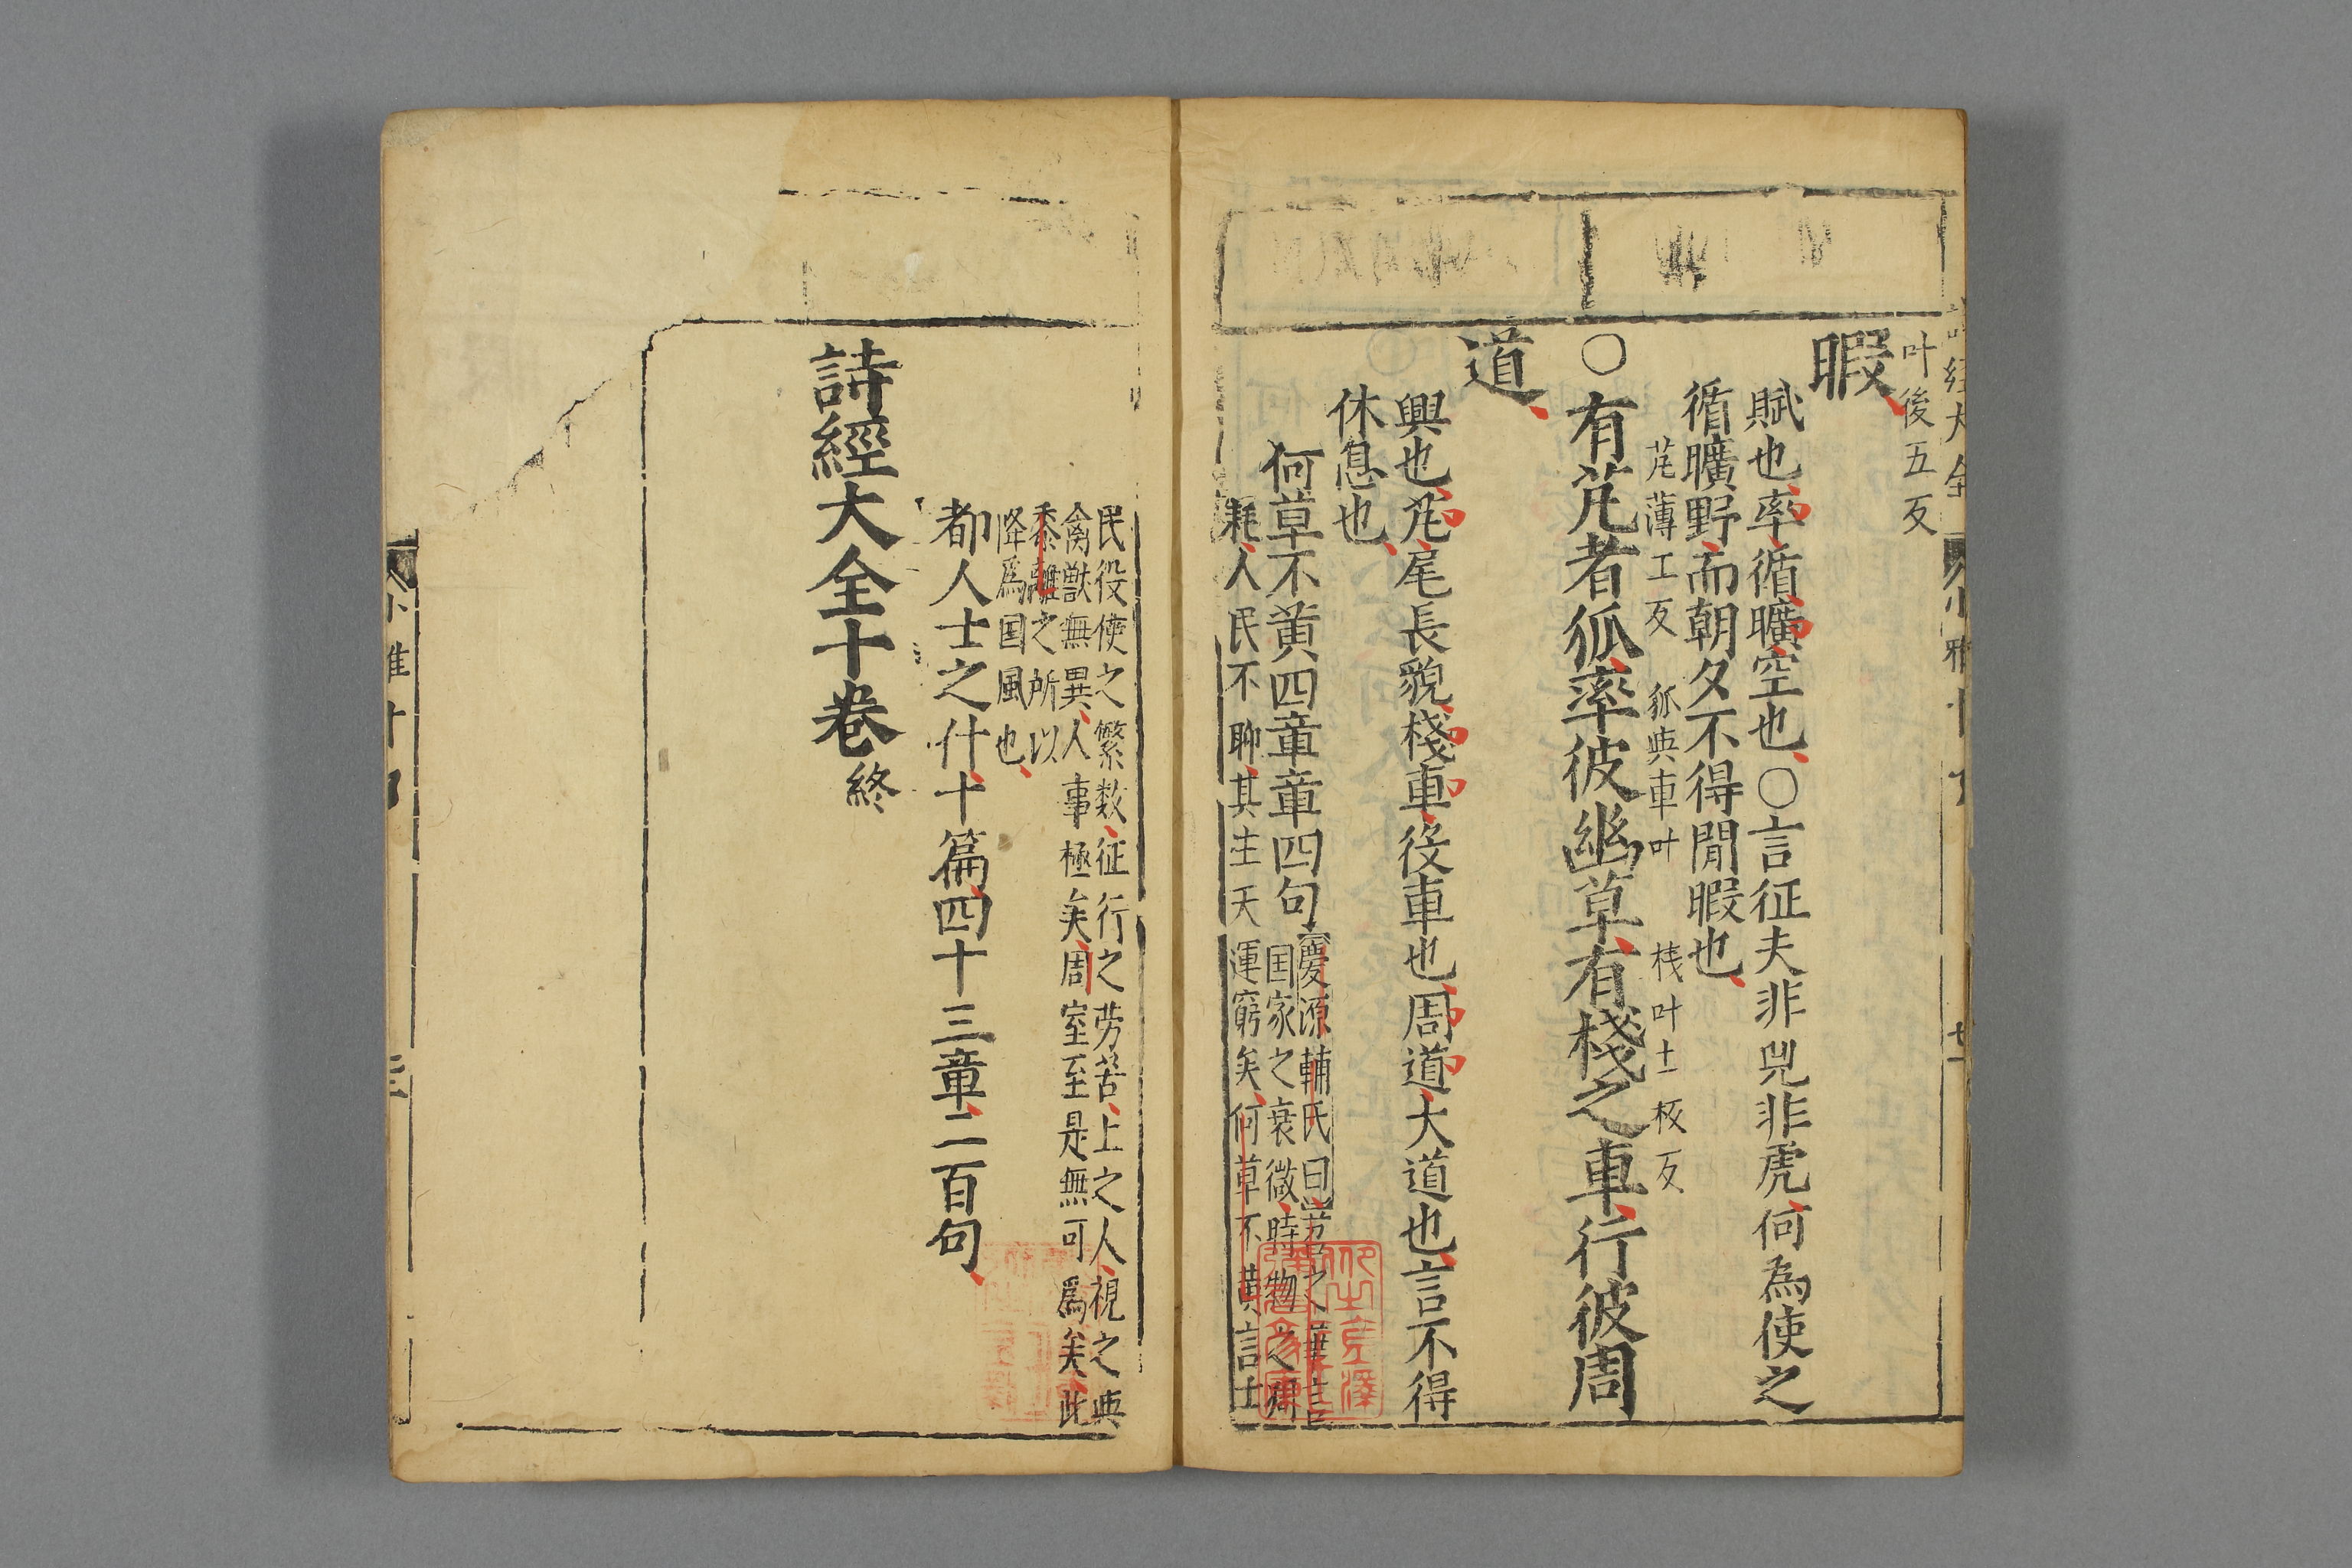 叶後五反
暇
賦也率循曠空也○言征夫非兕非虎何為使之
循曠野而朝夕不得閒暇也
芃薄工反 狐與車叶 棧叶士板反
○有芃者狐率彼幽草有棧之車行彼周
道
興也芃尾長貌棧車役車也周道大道也言不得
休息也
何草不黄四章章四句
慶源輔氏曰苕之華言
国家之衰微時物之凋
耗人民不聊其生天運窮矣何草不黄言士
民役使之繁数征行之劳苦上之人視之與
禽獣無異人事極矣周室至是無可爲矣此
黍離之所以
降爲国風也
都人士之什十篇四十三章二百句
詩經大全十卷終